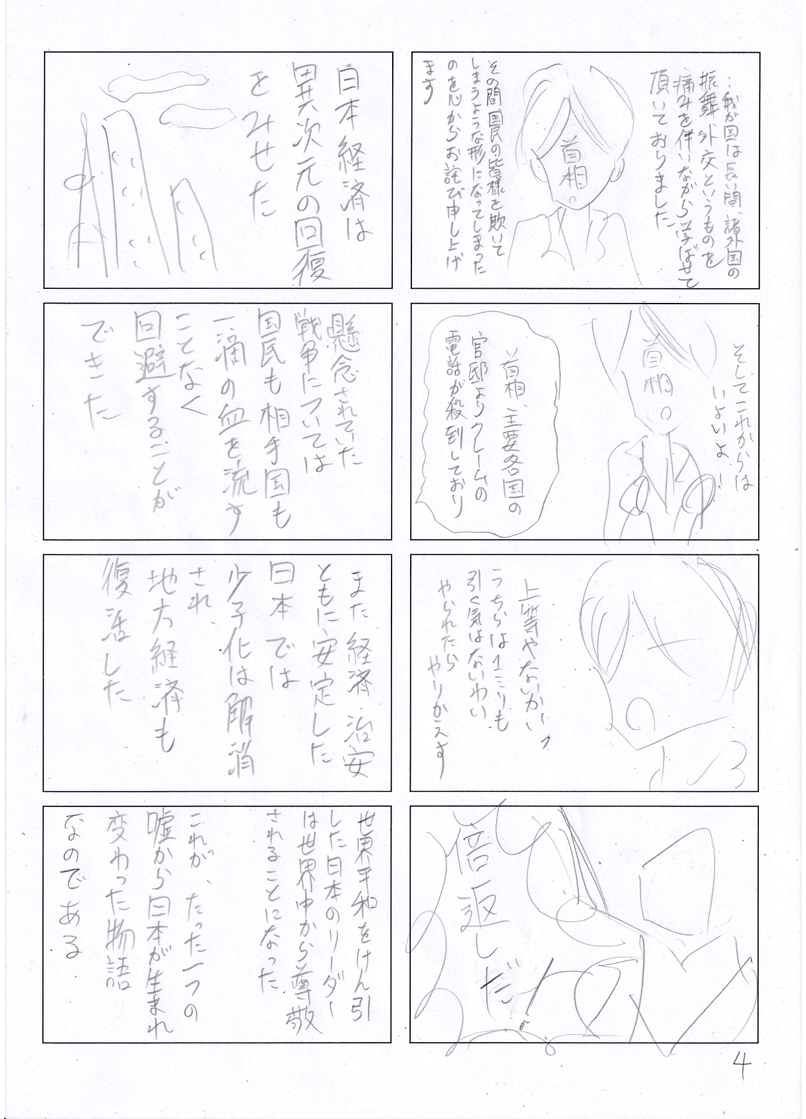 …我が国は長い間、諸外国の
振舞外交というものを
痛みを伴いながら学ばせて
頂いておりました
首相
その間国民の皆様を欺いて
しまうような形になってしまった
のを心からお詫び申し上げ
ます
そしてこれからは
いよいよ!
首相
首相、主要各国の
官邸よりクレームの
電話が殺到しており
上等やないかいっ
うちらは1ミリも
引く気はないわい
やられたら
やりかえす
倍返しだ!
日本経済は
異次元の回復
をみせた
懸念されていた
戦争については
国民も相手国も
一滴の血を流す
ことなく
回避することが
できた
また、経済・治安
ともに安定した
日本では
少子化は解消
され、
地方経済も
復活した
世界平和をけん引
した日本のリーダー
は世界中から尊敬
されることになった
これが、たった一つの
嘘から日本が生まれ
変わった物語
なのである
4